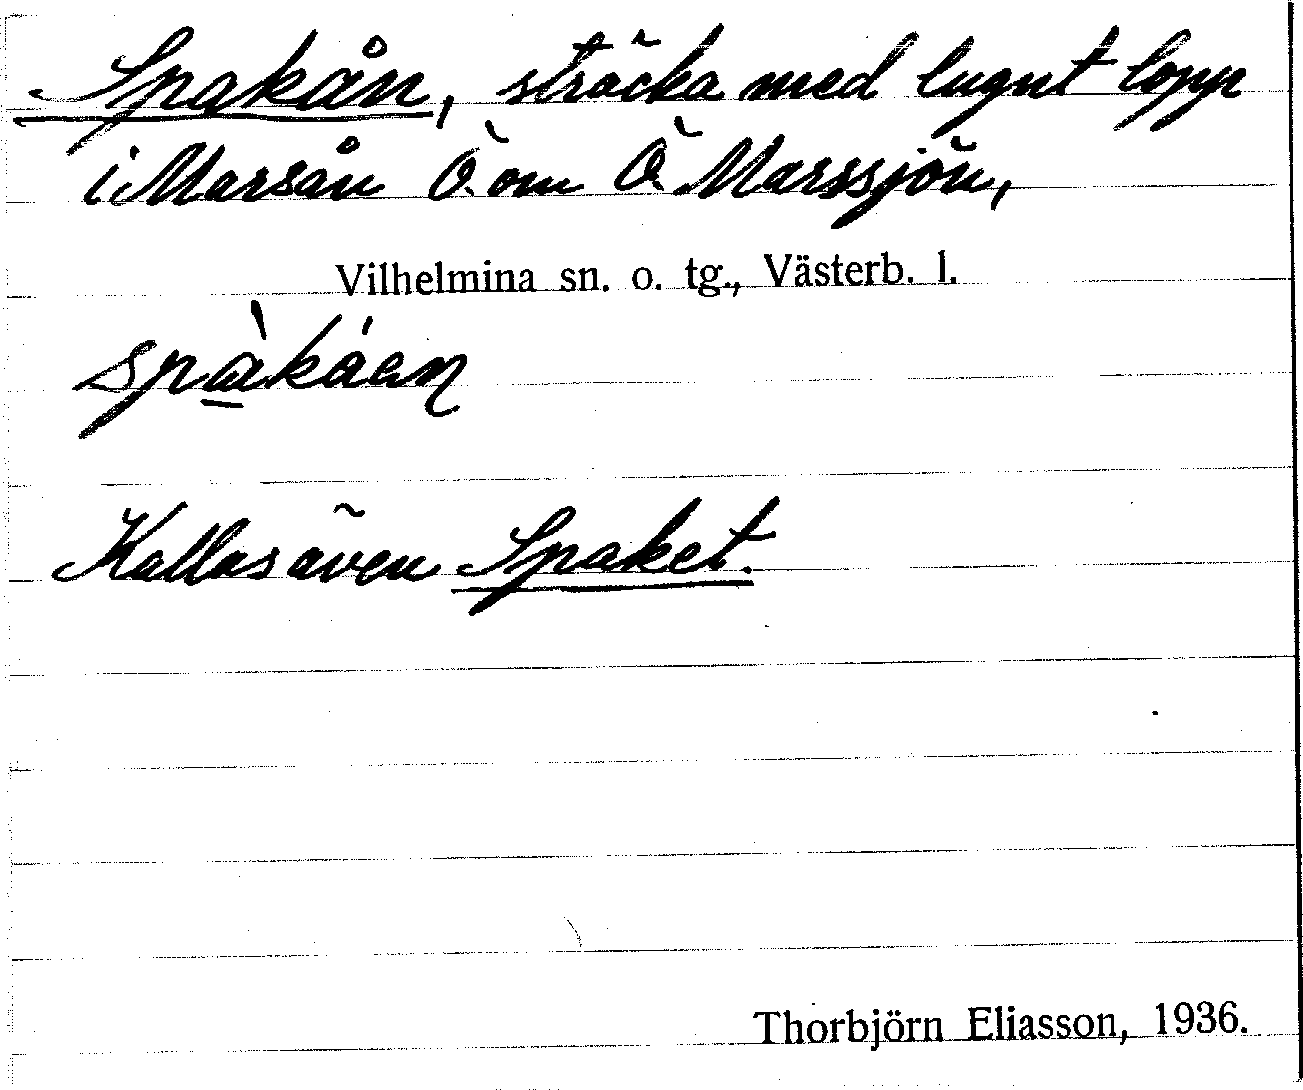 Spakån, sträcka med lugnt lopp
i Marsån Ö. om Ö. Marssjön,
Vilhelmina sn. o. tg., Västerb. l.
spàkáen
Kallas även Spaket.
Thorbjörn Eliasson, 1936.